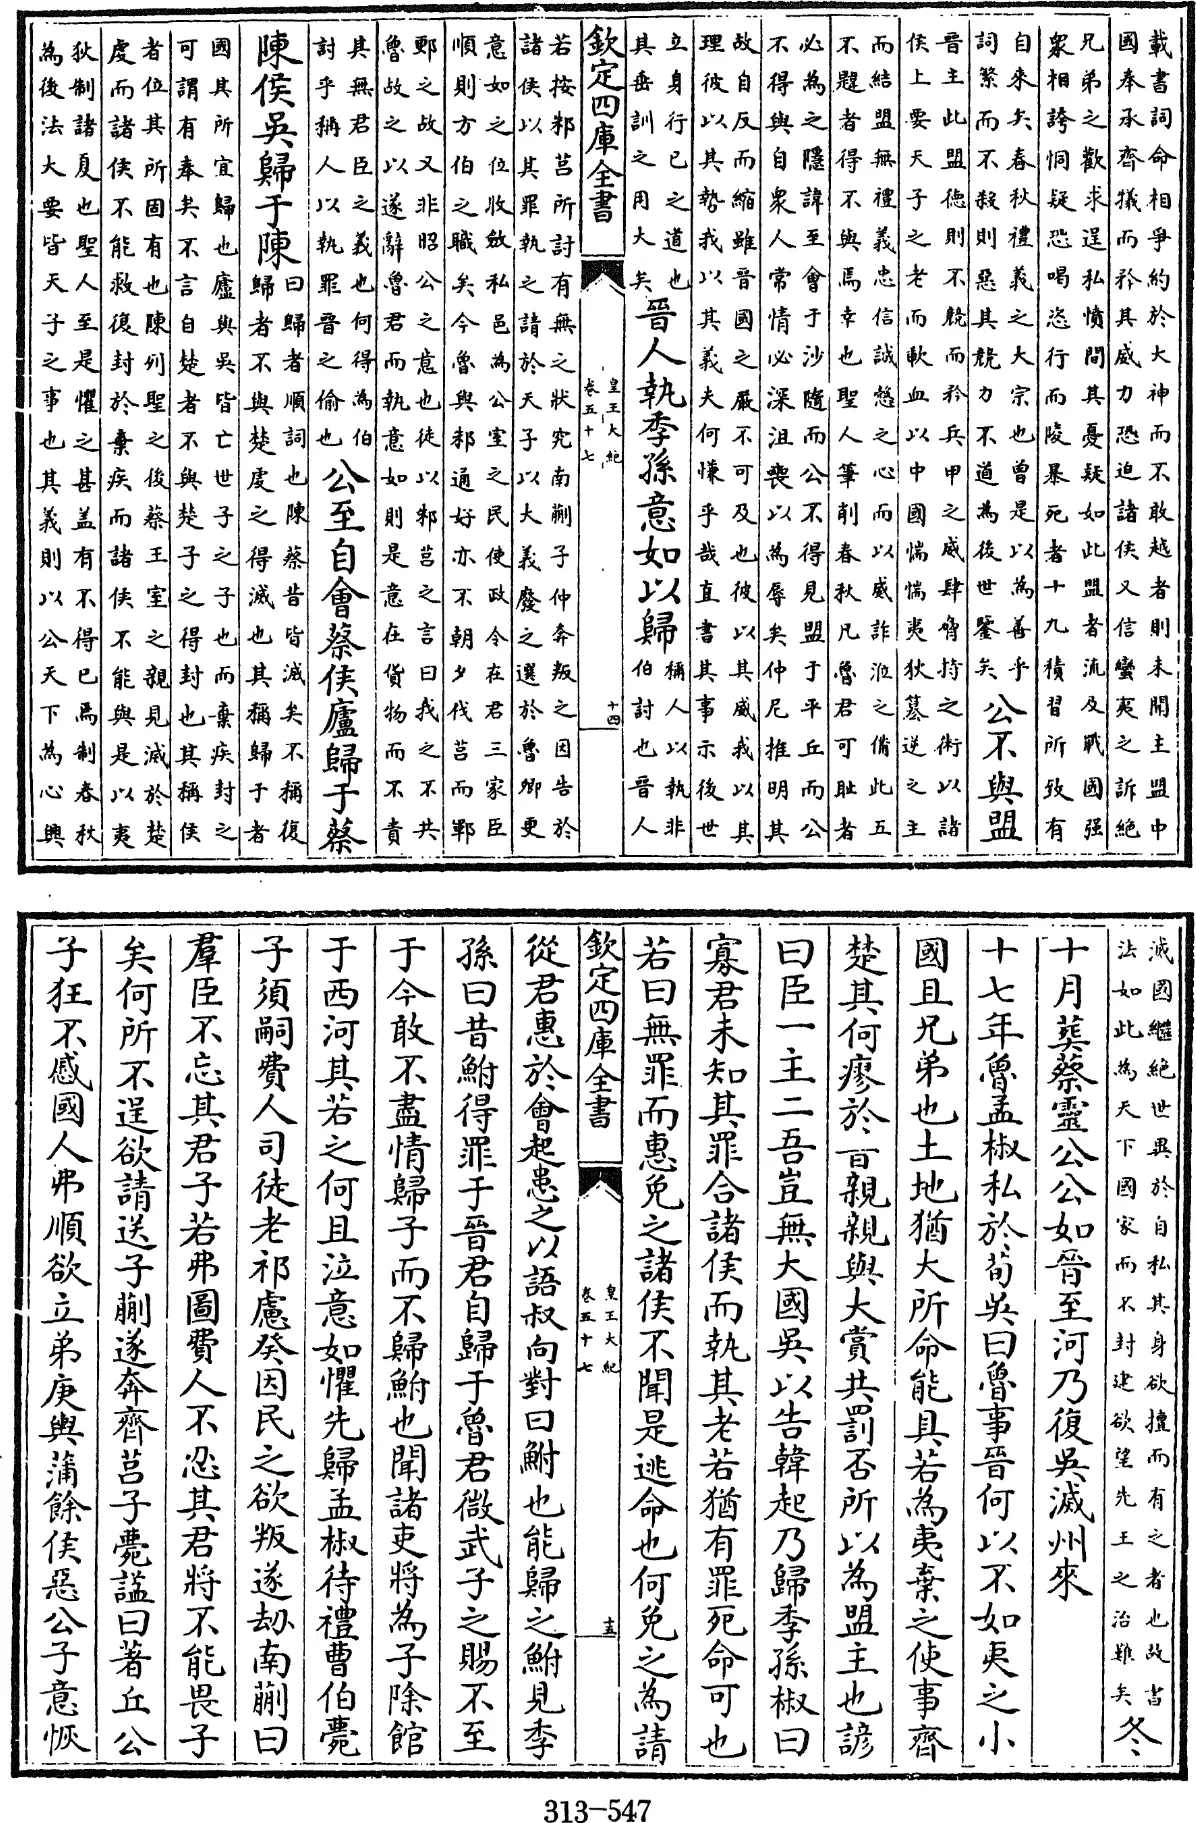 載書詞命相爭約於大神而不敢越者則未聞主盟中
國奉承齊犧而矜其威力恐迫諸侯又信蠻夷之訴絕
兄弟之歡求逞私憤間其憂疑如此盟者流及戰國强
衆相誇恫疑恐喝恣行而陵暴死者十九積習所致有
自來矣春秋禮義之大宗也曾是以為善乎
詞繁而不殺則惡其競力不道為後世鑒矣
公不與盟
晉主此盟德則不競而矜兵甲之威肆脅持之術以諸
侯上要天子之老而軟血以中國惴惴夷狄簒逆之主
而結盟無禮義忠信誠慤之心而以威詐涖之備此五
不韙者得不與焉幸也聖人筆削春秋凡魯君可耻者
必為之隱諱至會于沙隨而公不得見盟于平丘而公
不得與自衆人常情必深沮喪以為辱矣仲尼推明其
故自反而縮雖晉國之嚴不可及也彼以其威我以其
理彼以其勢我以其義夫何慊乎哉直書其事示後世
立身行已之道也
其垂訓之用大矣
晉人執季孫意如以歸
稱人以執非
伯討也晉人
欽定四庫全書
皇王大紀
卷五十七
十四
若按邾莒所討有無之狀究南蒯子仲奔叛之因告於
諸侯以其罪執之請於天子以大義廢之選於魯卿更
意如之位收斂私邑為公室之民使政令在君三家臣
順則方伯之職矣今魯與邾通好亦不朝夕伐莒而鄆
鄆之故又非昭公之意也徒以邾莒之言曰我之不共
魯故之以遂辭魯君而執意如則是意在貨物而不責
其無君臣之義也何得為伯
討乎稱人以執罪晉之偷也
公至自會蔡侯廬歸于蔡
陳侯吳歸于陳
曰歸者順詞也陳蔡昔皆滅矣不稱復
歸者不與楚虔之得滅也其稱歸于者
國其所宜歸也廬與吳皆亡世子之子也而棄疾封之
可謂有奉矣不言自楚者不與楚子之得封也其稱侯
者位其所固有也陳列聖之後蔡王室之親見滅於楚
虔而諸侯不能救復封於棄疾而諸侯不能與是以夷
狄制諸夏也聖人至是懼之甚盖有不得已焉制春秋
為後法大要皆天子之事也其義則以公天下為心興
滅國繼絕世異於自私其身欲擅而有之者也故書
法如此為天下國家而不封建欲望先王之治難矣
冬
十月葬蔡靈公公如晉至河乃復吳滅州來
十七年魯孟椒私於荀吳曰魯事晉何以不如夷之小
國且兄弟也土地猶大所命能具若為夷棄之使事齊
楚其何瘳於晉親親與大賞共罰否所以為盟主也諺
曰臣一主二吾豈無大國吳以告韓起乃歸季孫椒曰
寡君未知其罪合諸侯而執其老若猶有罪死命可也
若曰無罪而惠免之諸侯不聞是逃命也何免之為請
欽定四庫全書
皇王大紀
卷五十七
十五
從君惠於會起患之以語叔向對曰鮒也能歸之鮒見季
孫曰昔鮒得罪于晉君自歸于魯君微武子之賜不至
于今敢不盡情歸子而不歸鮒也聞諸吏將為子除館
于西河其若之何且泣意如懼先歸孟椒待禮曹伯薨
子須嗣費人司徒老祁慮癸因民之欲叛遂劫南蒯曰
羣臣不忘其君子若弗圖費人不忍其君將不能畏子
矣何所不逞欲請送子蒯遂奔齊莒子薨諡曰著丘公
子狂不慼國人弗順欲立弟庚輿蒲餘侯惡公子意恢
313-547